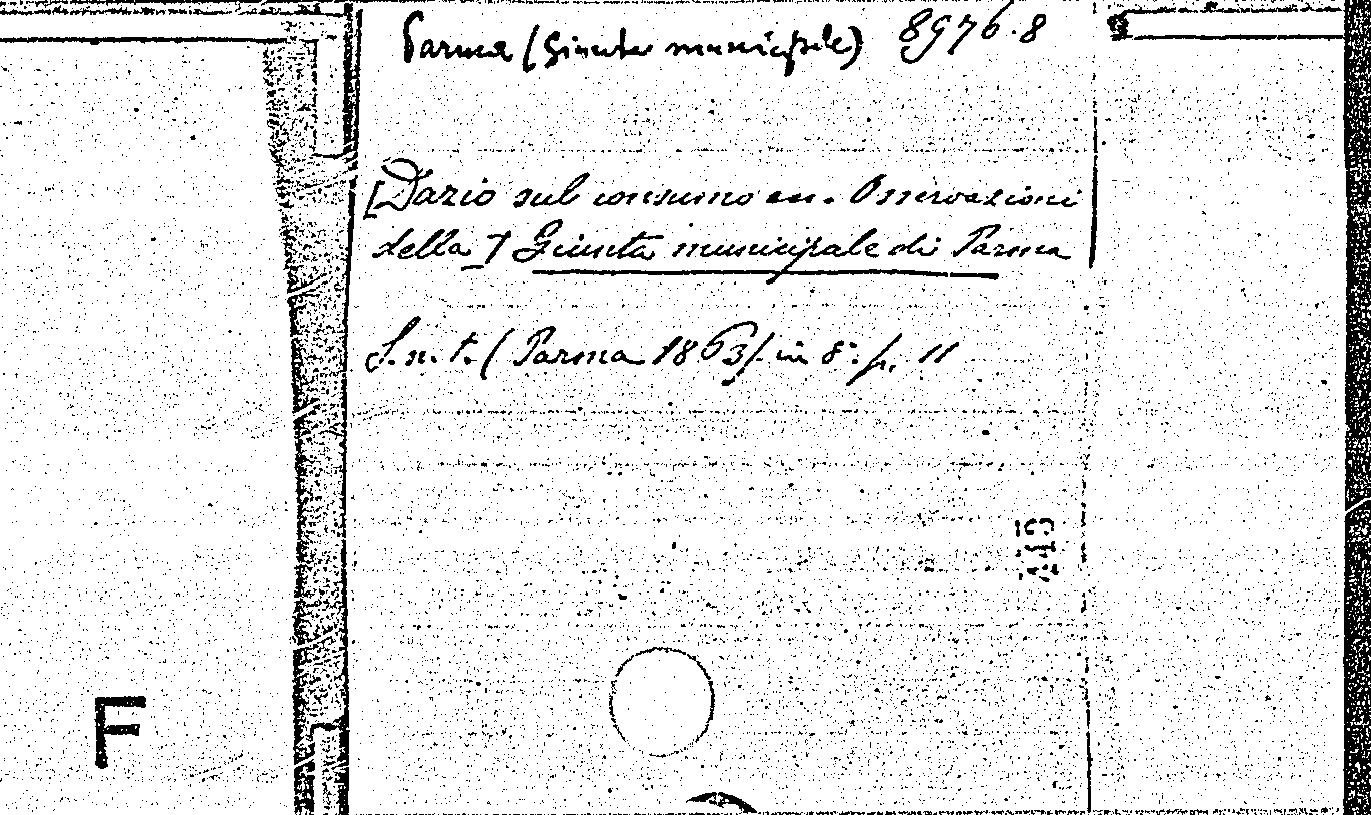 Parma (Giunta municipale) 8976.8
[Dazio sul consumo ecc. Osservazioni
della] Giunta municipale di Parma
S. n. t. (Parma 1863) in 8°. p. 11
F